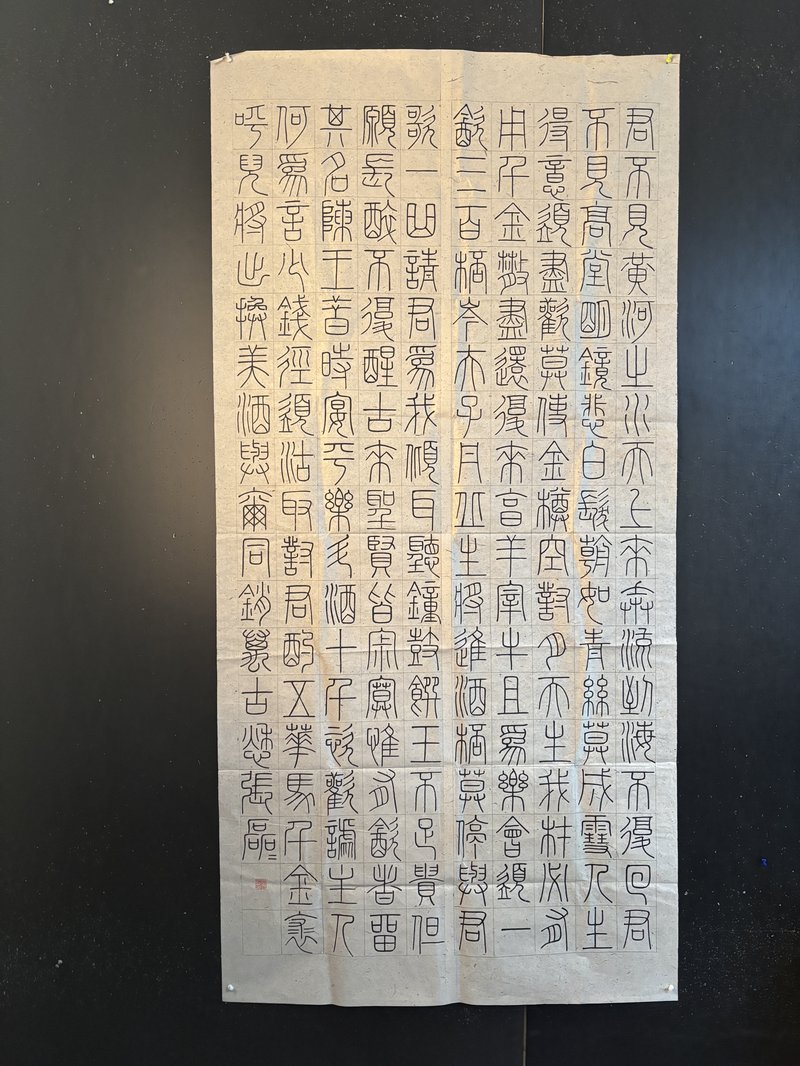 君不見黃河之水天上來奔流到海不復回君
不見高堂明鏡悲白髮朝如青絲莫成雪人生
得意須盡歡莫使金樽空對月天生我材必有
用千金散盡還復來亯羊宰牛且爲樂會須一
飲三百桮岑夫子丹丘生將進酒桮莫停與君
歌一曲請君爲我傾耳聽鐘鼓饌玉不足貴但
願長醉不復醒古來聖賢皆寂寞惟有飲者留
其名陳王昔時宴平樂斗酒十千恣歡謔主人
何爲言少錢徑須沽取對君酌五華馬千金裘
呼兒將出換美酒與爾同銷萬古愁張磊